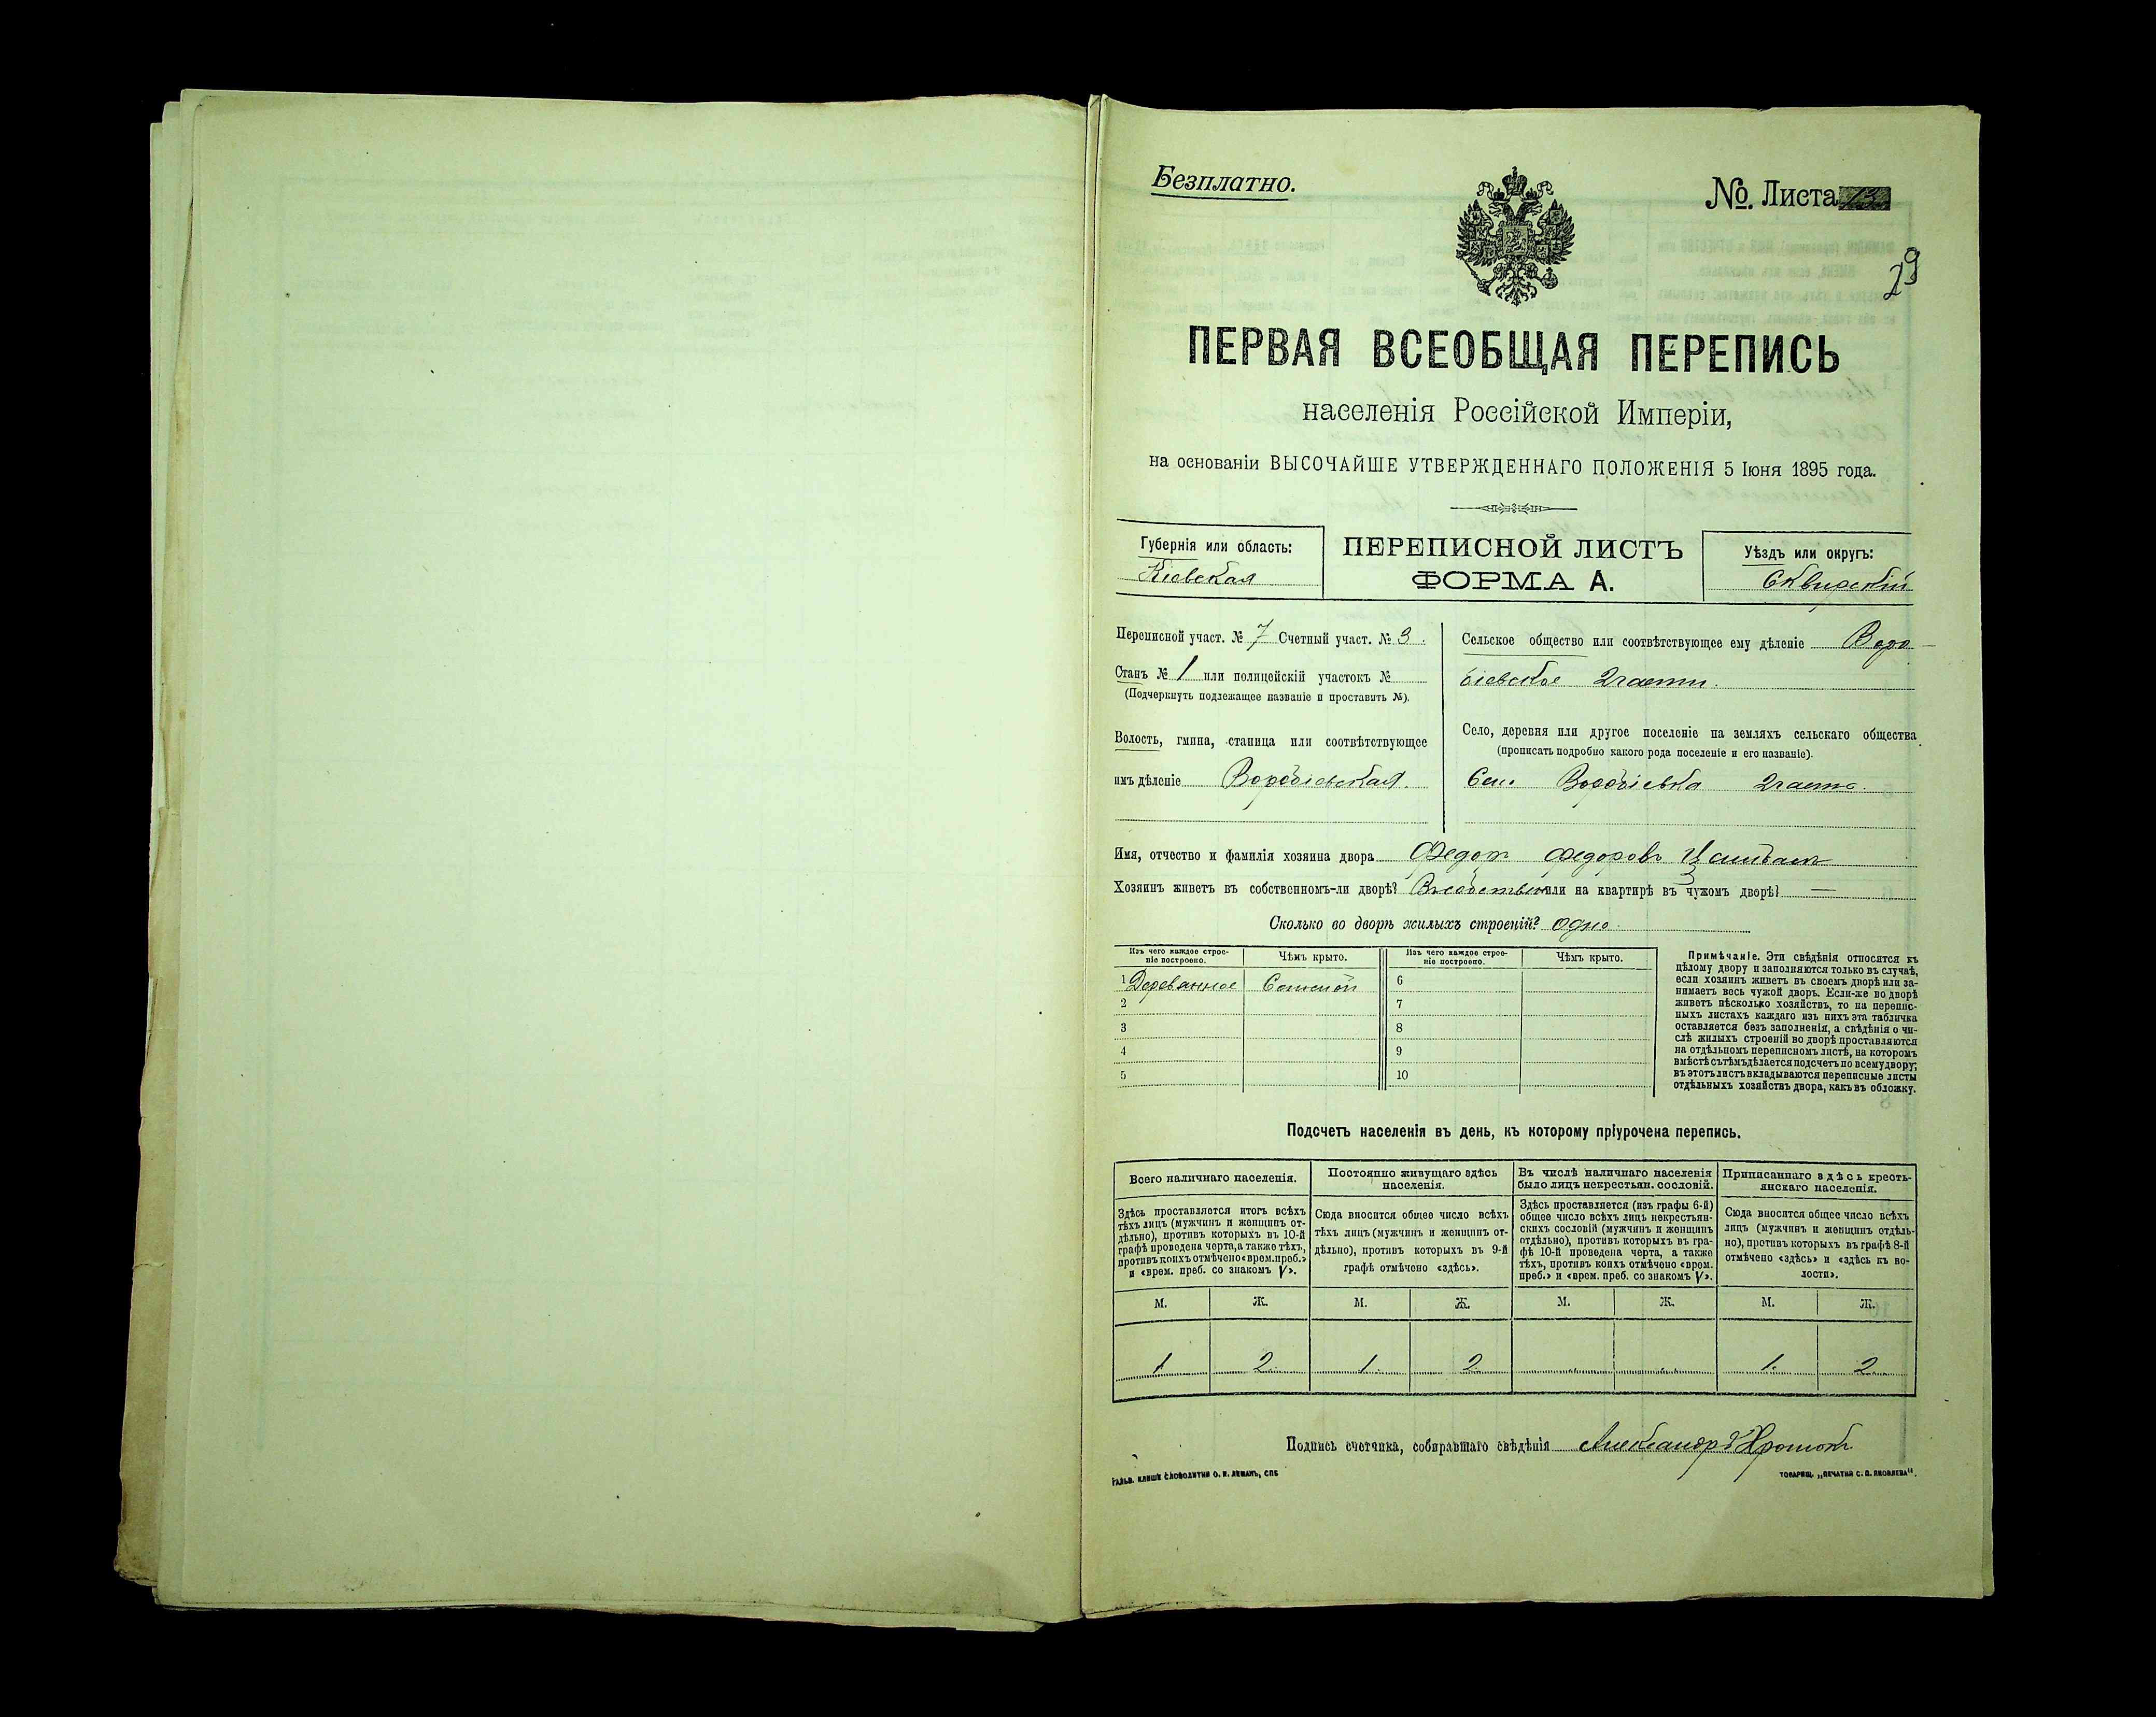 Безплатно.
№. Листа 13
29
ПЕРВАЯ ВСЕОБЩАЯ ПЕРЕПИСЬ
населенія Россійской Имперіи,
на основаніи ВЫСОЧАЙШЕ УТВЕРЖДЕННАГО ПОЛОЖЕНІЯ 5 Іюня 1895 года.
Губернія или область:
Кіевская
ПЕРЕПИСНОЙ ЛИСТЪ
ФОРМА А.
Уѣздъ или округъ:
Сквирскій
Переписной участ. № 7 Счетный участ. № 3.
Станъ № 1 или полицейскій участокъ №
(Подчеркнуть подлежащее названіе и проставить №).
Волость, гмина, станица или соотвѣтствующее
имъ дѣленіе Воробіевская.
Сельское общество или соотвѣтствующее ему дѣленіе Воро-
біевское 2 части.
Село, деревня или другое поселеніе на земляхъ сельскаго общества
(прописать подробно какого рода поселеніе и его названіе).
Село Воробіевка 2 часть.
Имя, отчество и фамилія хозяина двора Федот Федоровъ
Хозяинъ живетъ въ собственномъ-ли дворѣ? или на квартирѣ въ чужомъ дворѣ? —
Сколько во дворѣ жилыхъ строеній? одно
Изъ чего каждое строе-
ніе построено.
Чѣмъ крыто.
Изъ чего каждое строе-
ніе построено.
Чѣмъ крыто.
1 Деревянное Соломой 6
2 7
3 8
4 9
5 10
Примѣчаніе. Эти свѣдѣнія относятся къ
цѣлому двору и заполняются только въ случаѣ,
если хозяинъ живетъ въ своемъ дворѣ или за-
нимаетъ весь чужой дворъ. Если-же во дворѣ
живетъ нѣсколько хозяйствъ, то на перепис-
ныхъ листахъ каждаго изъ нихъ эта табличка
оставляется безъ заполненія, а свѣдѣнія о чи-
слѣ жилыхъ строеній во дворѣ проставляются
на отдѣльномъ переписномъ листѣ, на которомъ
вмѣстѣ съ тѣмъ дѣлается подсчетъ по всему двору;
въ этотъ листъ вкладываются переписные листы
отдѣльныхъ хозяйствъ двора, какъ въ обложку.
Подсчетъ населенія въ день, къ которому пріурочена перепись.
Всего наличнаго населенія.
Здѣсь проставляется итогъ всѣхъ
тѣхъ лицъ (мужчинъ и женщинъ от-
дѣльно), противъ которыхъ въ 10-й
графѣ проведена черта, а также тѣхъ,
противъ коихъ отмѣчено «врем. преб.»
и «врем. преб. со знакомъ V».
Постоянно живущаго здѣсь
населенія.
Сюда вносится общее число всѣхъ
тѣхъ лицъ (мужчинъ и женщинъ от-
дѣльно), противъ которыхъ въ 9-й
графѣ отмѣчено «здѣсь».
Въ числѣ наличнаго населенія
было лицъ некрестьян. сословій.
Здѣсь проставляется (изъ графы 6-й)
общее число всѣхъ лицъ некрестьян-
скихъ сословій (мужчинъ и женщинъ
отдѣльно), противъ которыхъ въ гра-
фѣ 10-й проведена черта, а также
тѣхъ, противъ коихъ отмѣчено «врем.
преб.» и «врем. преб. со знакомъ V».
Приписаннаго здѣсь кресть-
янскаго населенія.
Сюда вносится общее число всѣхъ
лицъ (мужчинъ и женщинъ отдѣль-
но), противъ которыхъ въ графѣ 8-й
отмѣчено «здѣсь» и «здѣсь къ во-
лости».
М. Ж. М. Ж. М. Ж. М. Ж.
1 2 1 2 1 2
Подпись счетчика, собиравшаго свѣдѣнія Александръ
ГАЛЬВ. КЛИШЕ СЛОВОЛИТНИ О. И. ЛЕМАНЪ, СПБ
ТОВАРИЩ. „ПЕЧАТНЯ С. П. ЯКОВЛЕВА".